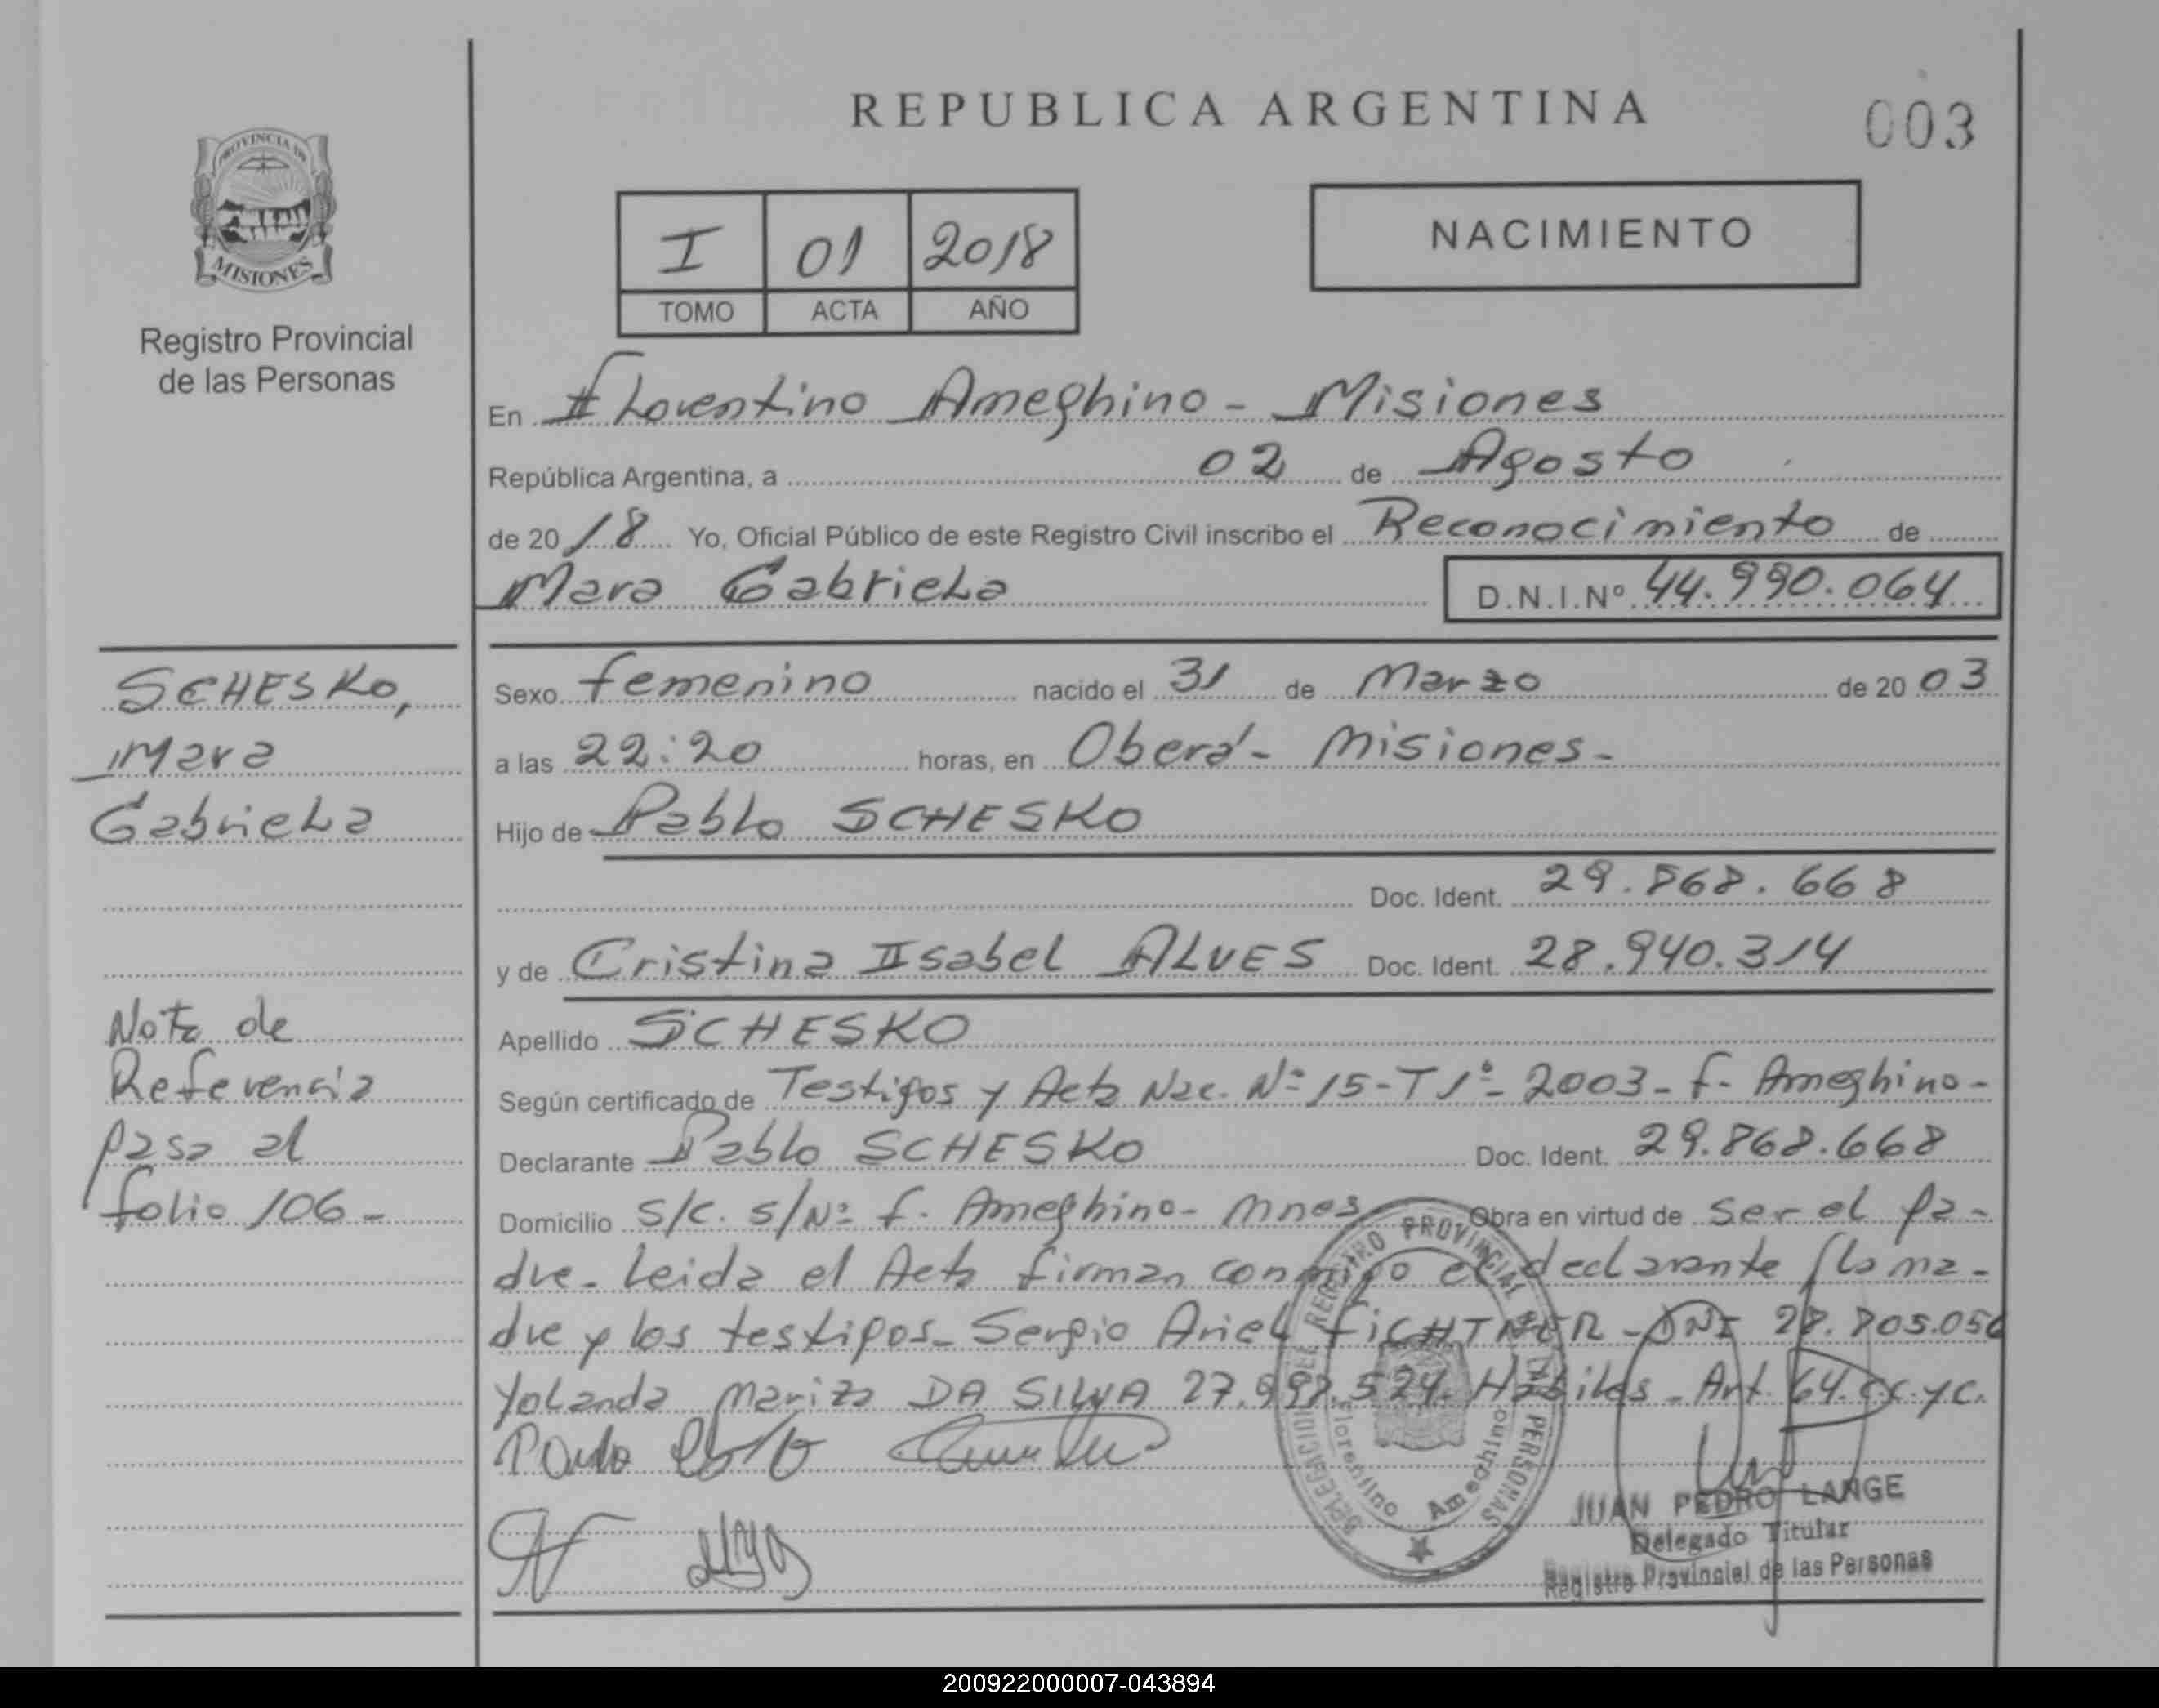 REPUBLICA ARGENTINA
003
PROVINCIA DE
MISIONES
Registro Provincial
de las Personas
I 01 2018
TOMO ACTA AÑO
NACIMIENTO
En Florentino Ameghino - Misiones
República Argentina, a 02 de Agosto
de 2018 Yo, Oficial Público de este Registro Civil inscribo el Reconocimiento de
Mara Gabriela D.N.I.Nº 44.990.064
SCHESKO,
Mara
Gabriela
Nota de
Referencia
pasa al
folio 106-
Sexo femenino nacido el 31 de Marzo de 2003
a las 22:20 horas, en Oberá - Misiones-
Hijo de Pablo SCHESKO
Doc. Ident. 29.868.668
y de Cristina Isabel ALVES Doc. Ident. 28.940.314
Apellido SCHESKO
Según certificado de Testigos y Acta Nac. Nº 15-T1º- 2003- f. Ameghino-
Declarante Pablo SCHESKO Doc. Ident. 29.868.668
Domicilio S/C. S/Nº f. Ameghino- Mnes Obra en virtud de ser el pa-
dre- Leida el Acta firman conmigo el declarante, la ma-
dre y los testigos- Sergio Ariel FICHTNER - DNI 28.805.056
Yolanda Mariza DA SILVA 27.992.524. Habiles - Art. 64. C.C. y C.
DELEGACION DEL REGISTRO PROVINCIAL DE LAS PERSONAS
Florentino Ameghino
JUAN PEDRO LANGE
Delegado Titular
Registro Provincial de las Personas
200922000007-043894